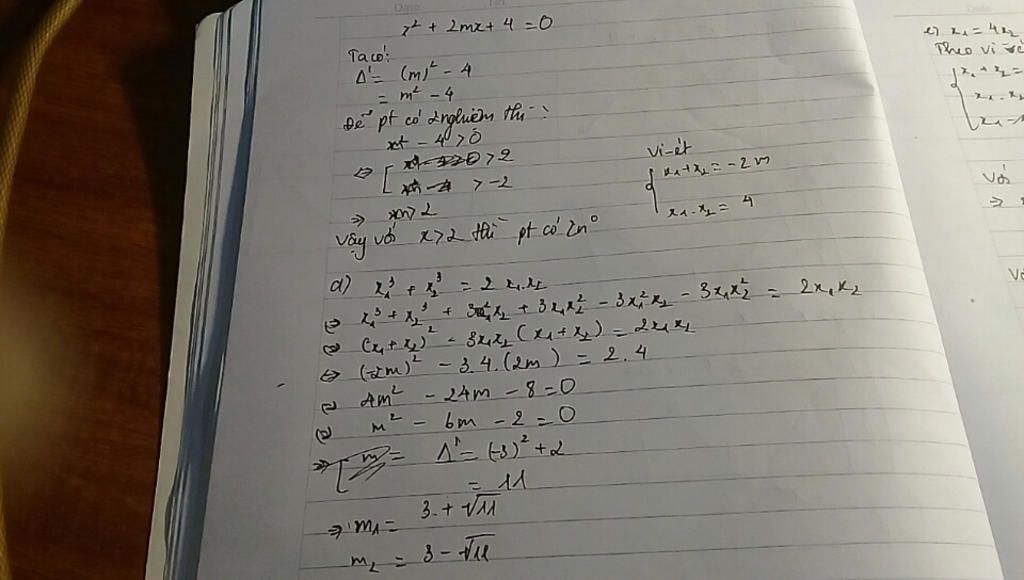 x² + 2mx + 4 = 0
Ta có:
Δ' = (m)² - 4
= m² - 4
Để pt có 2 nghiệm thì:
- 4 > 0
⇔ [ > 2
> -2
⇒ m > 2
Vậy với x > 2 thì pt có 2n⁰
Vi-ét
{ x₁ + x₂ = -2m
x₁ . x₂ = 4
d) x₁³ + x₂³ = 2x₁.x₂
⇔ x₁³ + x₂³ + 3x₁²x₂ + 3x₁x₂² - 3x₁²x₂ - 3x₁x₂² = 2x₁x₂
⇔ (x₁ + x₂)² - 3x₁x₂(x₁ + x₂) = 2x₁x₂
⇔ (-2m)² - 3.4.(2m) = 2.4
⇔ 4m² - 24m - 8 = 0
⇔ m² - 6m - 2 = 0
⇒ Δ' = (-3)² + 2
= 11
⇒ m₁ = 3 + √11
m₂ = 3 - √11
e) x₁ = 4x₂
Theo vi-ét
{ x₁ + x₂ =
x₁ . x₂
x₁ =
Với
⇒ x